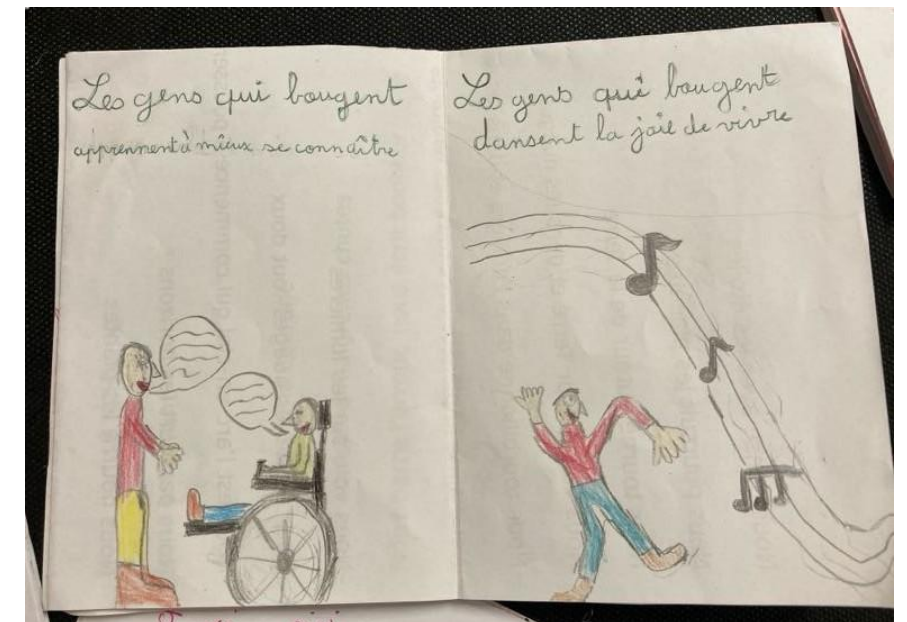 Les gens qui bougent
apprennent à mieux se connaître
Les gens qui bougent
dansent la joie de vivre